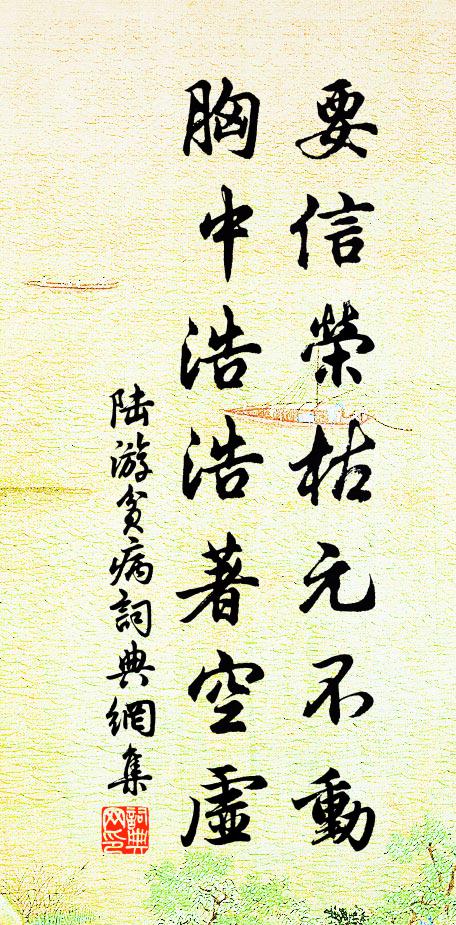 要信榮枯元不動
胸中浩浩著空虛
陆游貧病詞典網集
詞典
网印